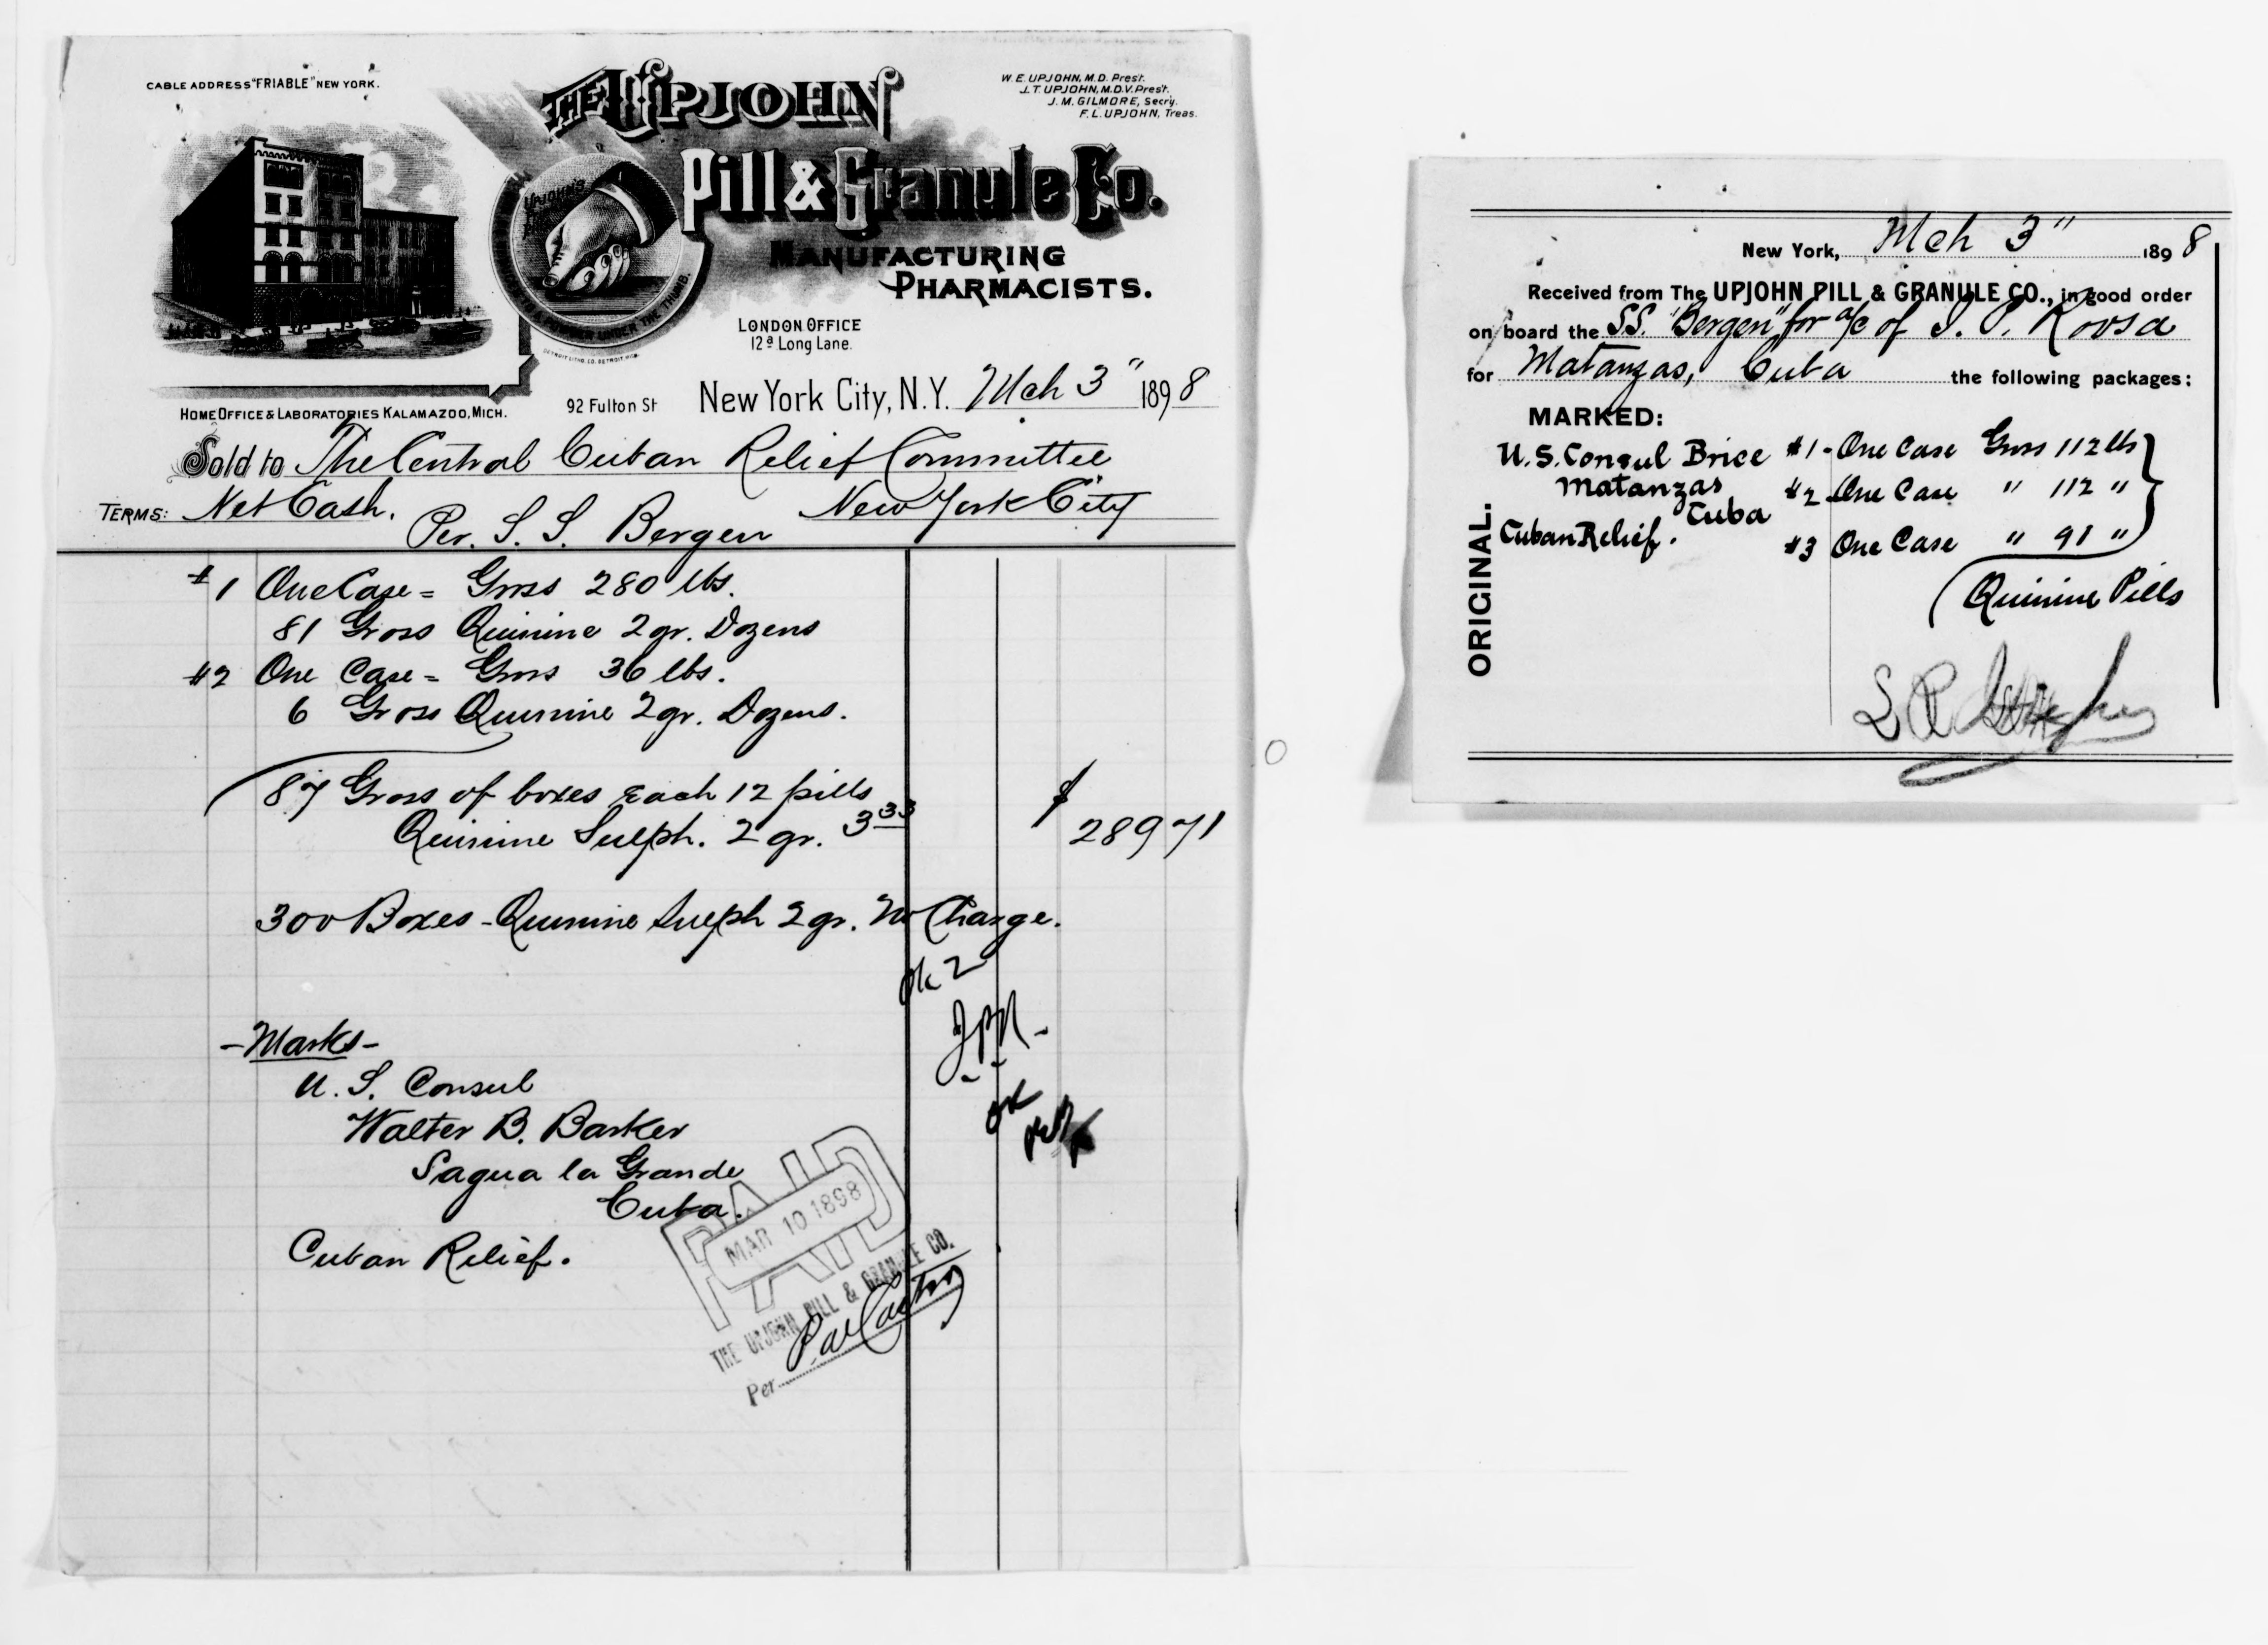 CABLE ADDRESS "FRIABLE" NEW YORK.
THE UPJOHN
Pill & Granule Co.
MANUFACTURING
PHARMACISTS.
W. E. UPJOHN, M.D. Prest.
J. T. UPJOHN, M.D. V. Prest.
J. M. GILMORE, Secry.
F. L. UPJOHN, Treas.
UPJOHN'S
UNDER THE THUMB.
DETROIT LITHO. CO. DETROIT MICH.
LONDON OFFICE
12a Long Lane.
HOME OFFICE & LABORATORIES KALAMAZOO, MICH.
92 Fulton St New York City, N.Y. Mch 3" 1898
Sold to The Central Cuban Relief Committee
TERMS: Net Cash. New York City
Per. S. S. Bergen
#1 One Case = Gross 280 lbs.
81 Gross Quinine 2 gr. Dozens
#2 One Case = Gross 36 lbs.
6 Gross Quinine 2 gr. Dozens.
87 Gross of boxes each 12 pills
Quinine Sulph. 2 gr. 3 33 $ 289 71
300 Boxes - Quinine Sulph 2 gr. No Charge.
Ok
OK
- Marks -
U. S. Consul
Walter B. Barker
Sagua la Grande
Cuba.
Cuban Relief.
PAID
MAR 10 1898
THE UPJOHN PILL & GRANULE CO.
Per
New York, Mch 3" 1898
Received from The UPJOHN PILL & GRANULE CO., in good order
on board the S.S. "Bergen" for a/c of Roosa
for Matanzas, Cuba the following packages:
MARKED:
U.S. Consul Brice #1 - One Case Gross 112 lbs
Matanzas #2 One Case " 112 "
Cuba
Cuban Relief. #3 One Case " 91 "
Quinine Pills
ORIGINAL.